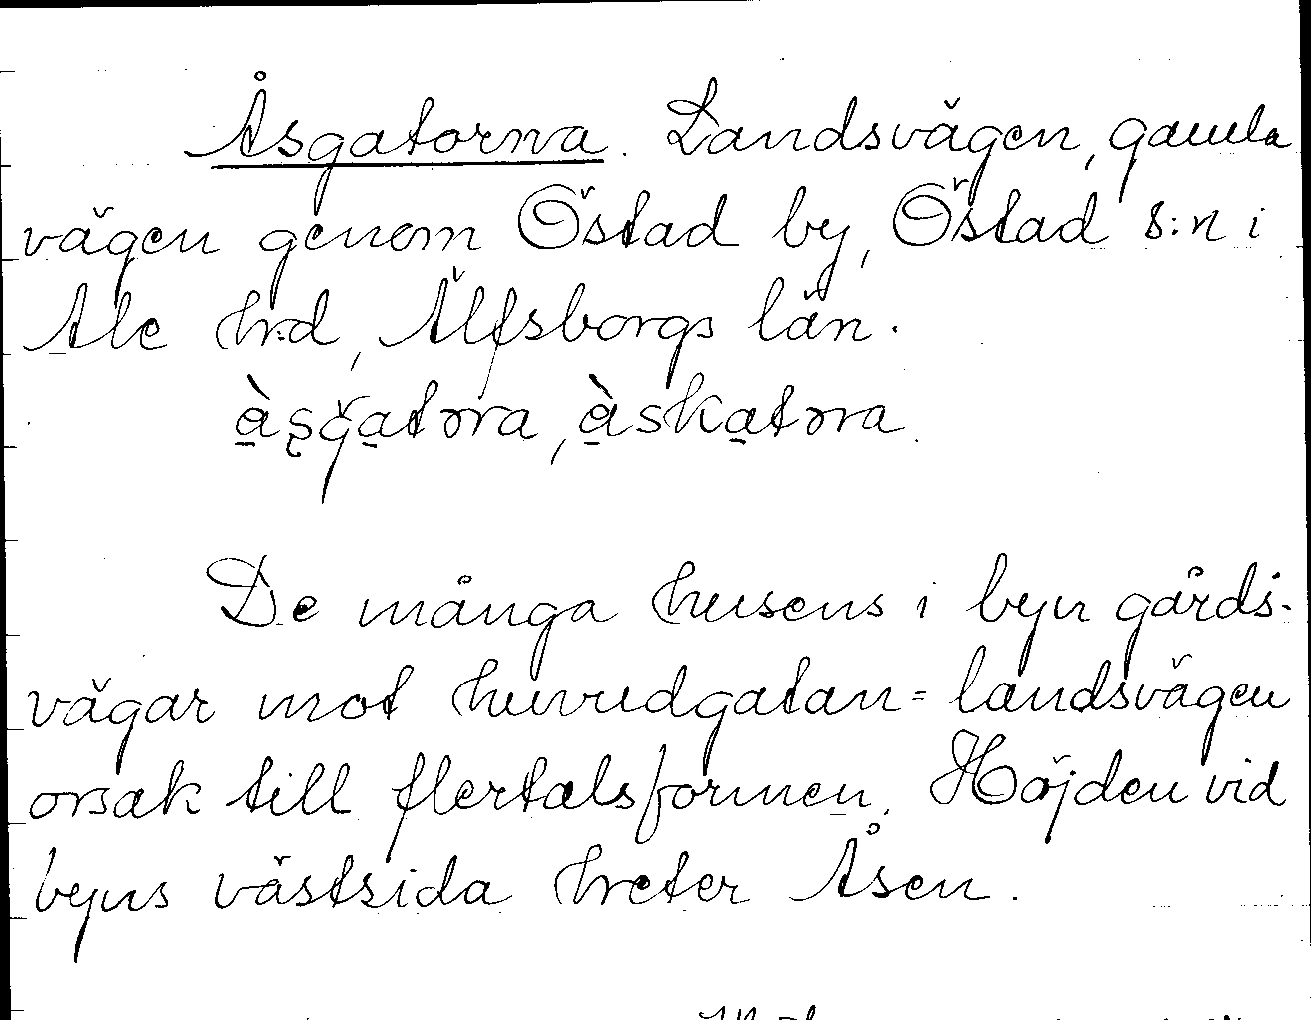 Åsgatorna. Landsvägen, gamla
vägen genom Östad by, Östad s:n i
Ale hrd, Älfsborgs län.
àsgatora, àskatora.
De många husens i byn gårds-
vägar mot huvudgatan = landsvägen
orsak till flertalsformen. Höjden vid
byns västsida heter Åsen.